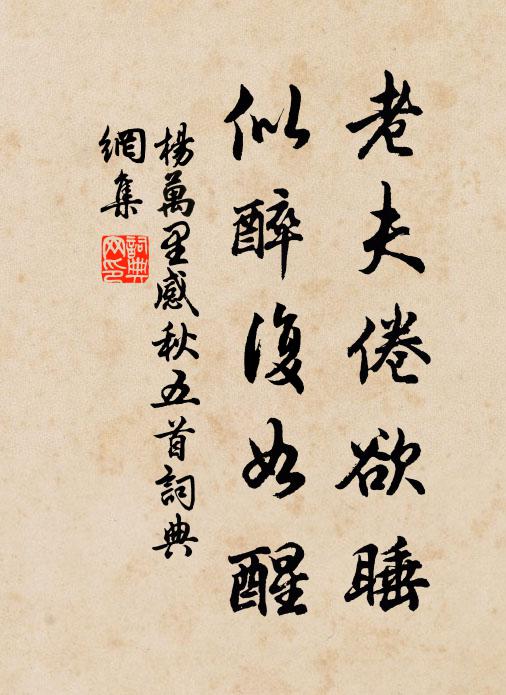 老夫倦欲睡
似醉復如醒
楊萬里感秋五首詞典
網集
詞典网印